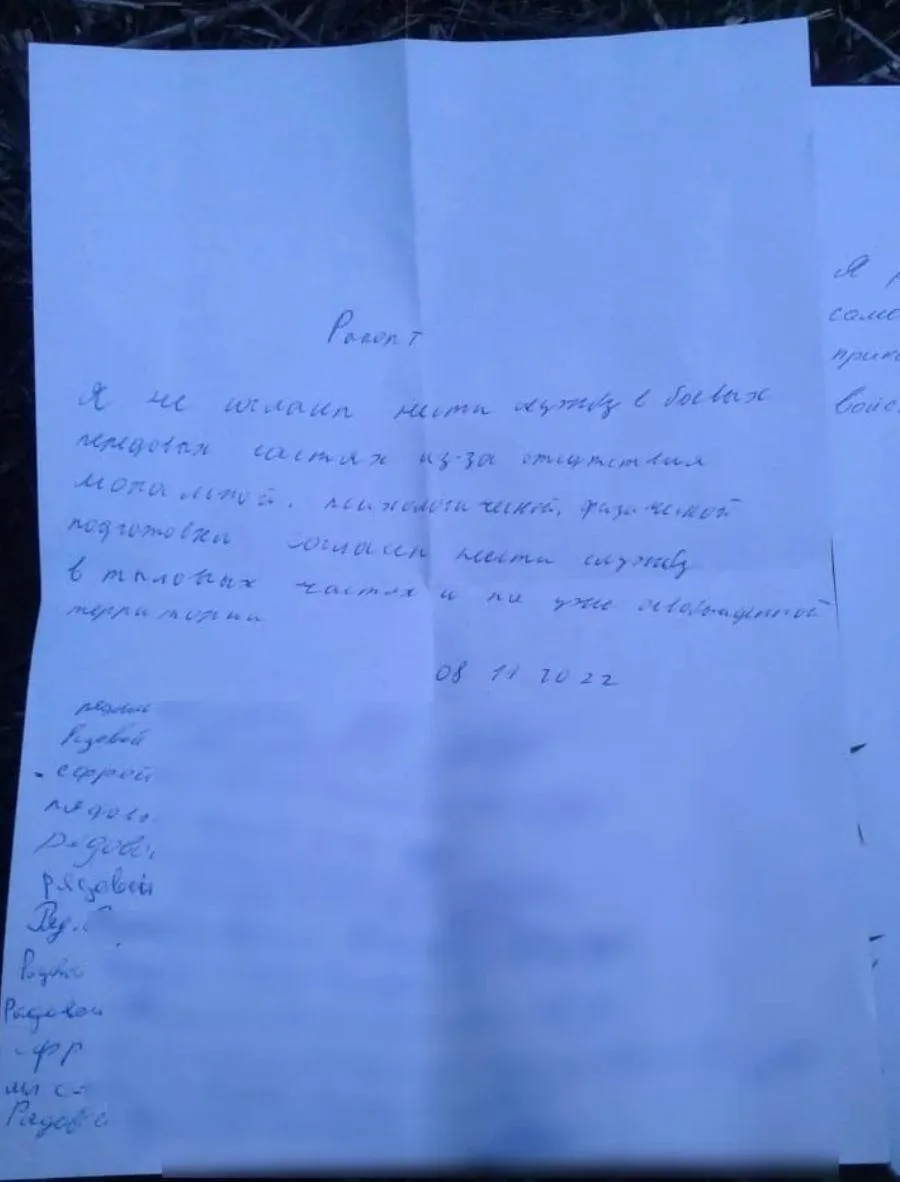 Рапорт
Я не согласен нести службу в боевых
передовых частях из-за отсутствия
моральной, психологической, физической
подготовки согласен нести службу
в тыловых частях и на уже освобожденной
территории
08 11 2022
рядов
Рядовой
ефрей
рядово
рядовой
рядовой
Ряд.
Рядово
Рядовой
ефр
мл с
Рядово
Я
само
прика
войс